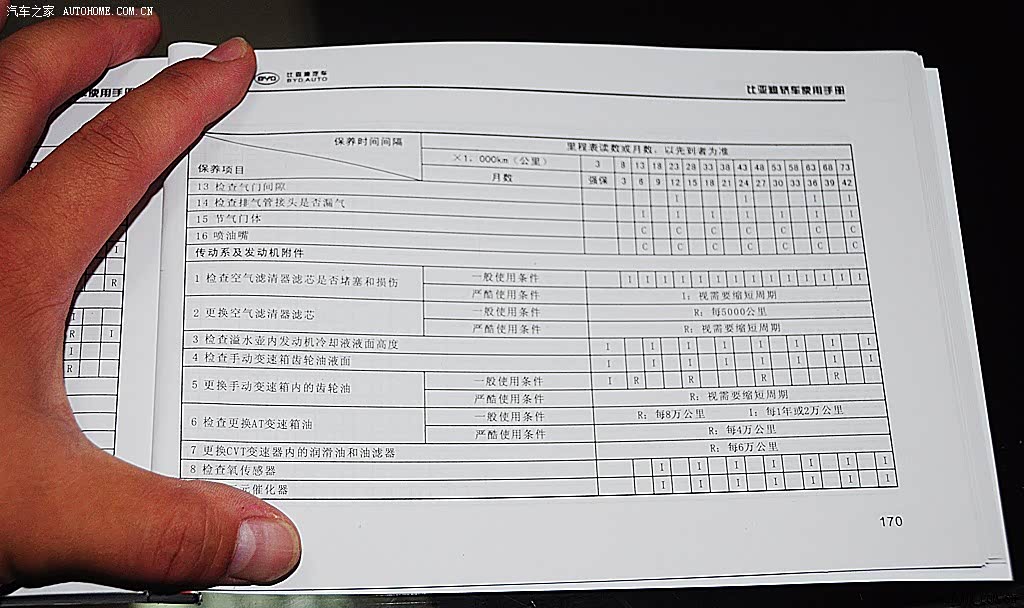 汽车之家 AUTOHOME.COM.CN
BYD 比亚迪汽车
BYD AUTO
使用手册
比亚迪轿车使用手册
保养时间间隔
里程表读数或月数，以先到者为准
×1，000km（公里） 3 8 13 18 23 28 33 38 43 48 53 58 63 68 73
保养项目
月数 强保 3 6 9 12 15 18 21 24 27 30 33 36 39 42
13 检查气门间隙 I I I I
14 检查排气管接头是否漏气 I I I I I I I
15 节气门体 C C C C C C C
16 喷油嘴 C C C C C C C
传动系及发动机附件
1 检查空气滤清器滤芯是否堵塞和损伤 一般使用条件 I I I I I I I I I I I I I I
严酷使用条件 I：视需要缩短周期
2 更换空气滤清器滤芯 一般使用条件 R：每5000公里
严酷使用条件 R：视需要缩短周期
3 检查溢水壶内发动机冷却液液面高度 I I I I I I I I
4 检查手动变速箱齿轮油液面 I I I I I I I I
5 更换手动变速箱内的齿轮油 一般使用条件 I R R R R
严酷使用条件 R：视需要缩短周期
6 检查更换AT变速箱油 一般使用条件 R：每8万公里 I：每1年或2万公里
严酷使用条件 R：每4万公里
7 更换CVT变速器内的润滑油和油滤器 R：每6万公里
8 检查氧传感器 I I I I I I I
元催化器 I I I I I I I
170